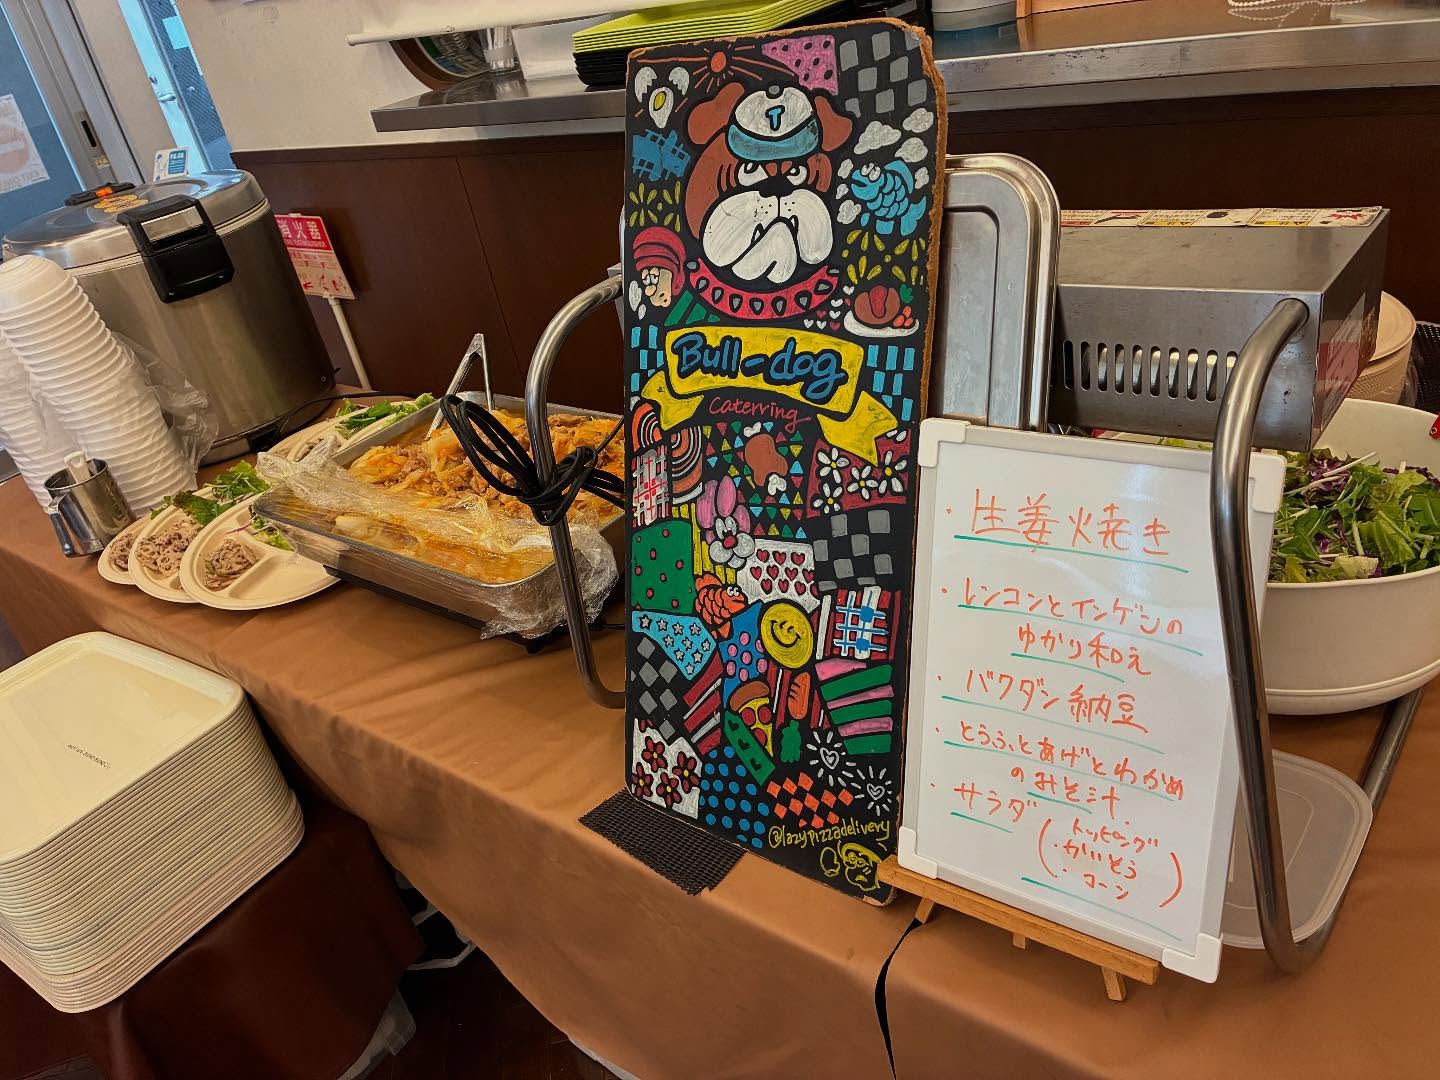 T
Bull-dog
Caterring
@lazypizzadelivery
消火器
FIRE EXTINGUISHER
・生姜焼き
・レンコンとインゲンの
ゆかり和え
・バクダン納豆
・とうふとあげとわかめ
のみそ汁
・サラダ
(トッピング
・かいそう
・コーン)